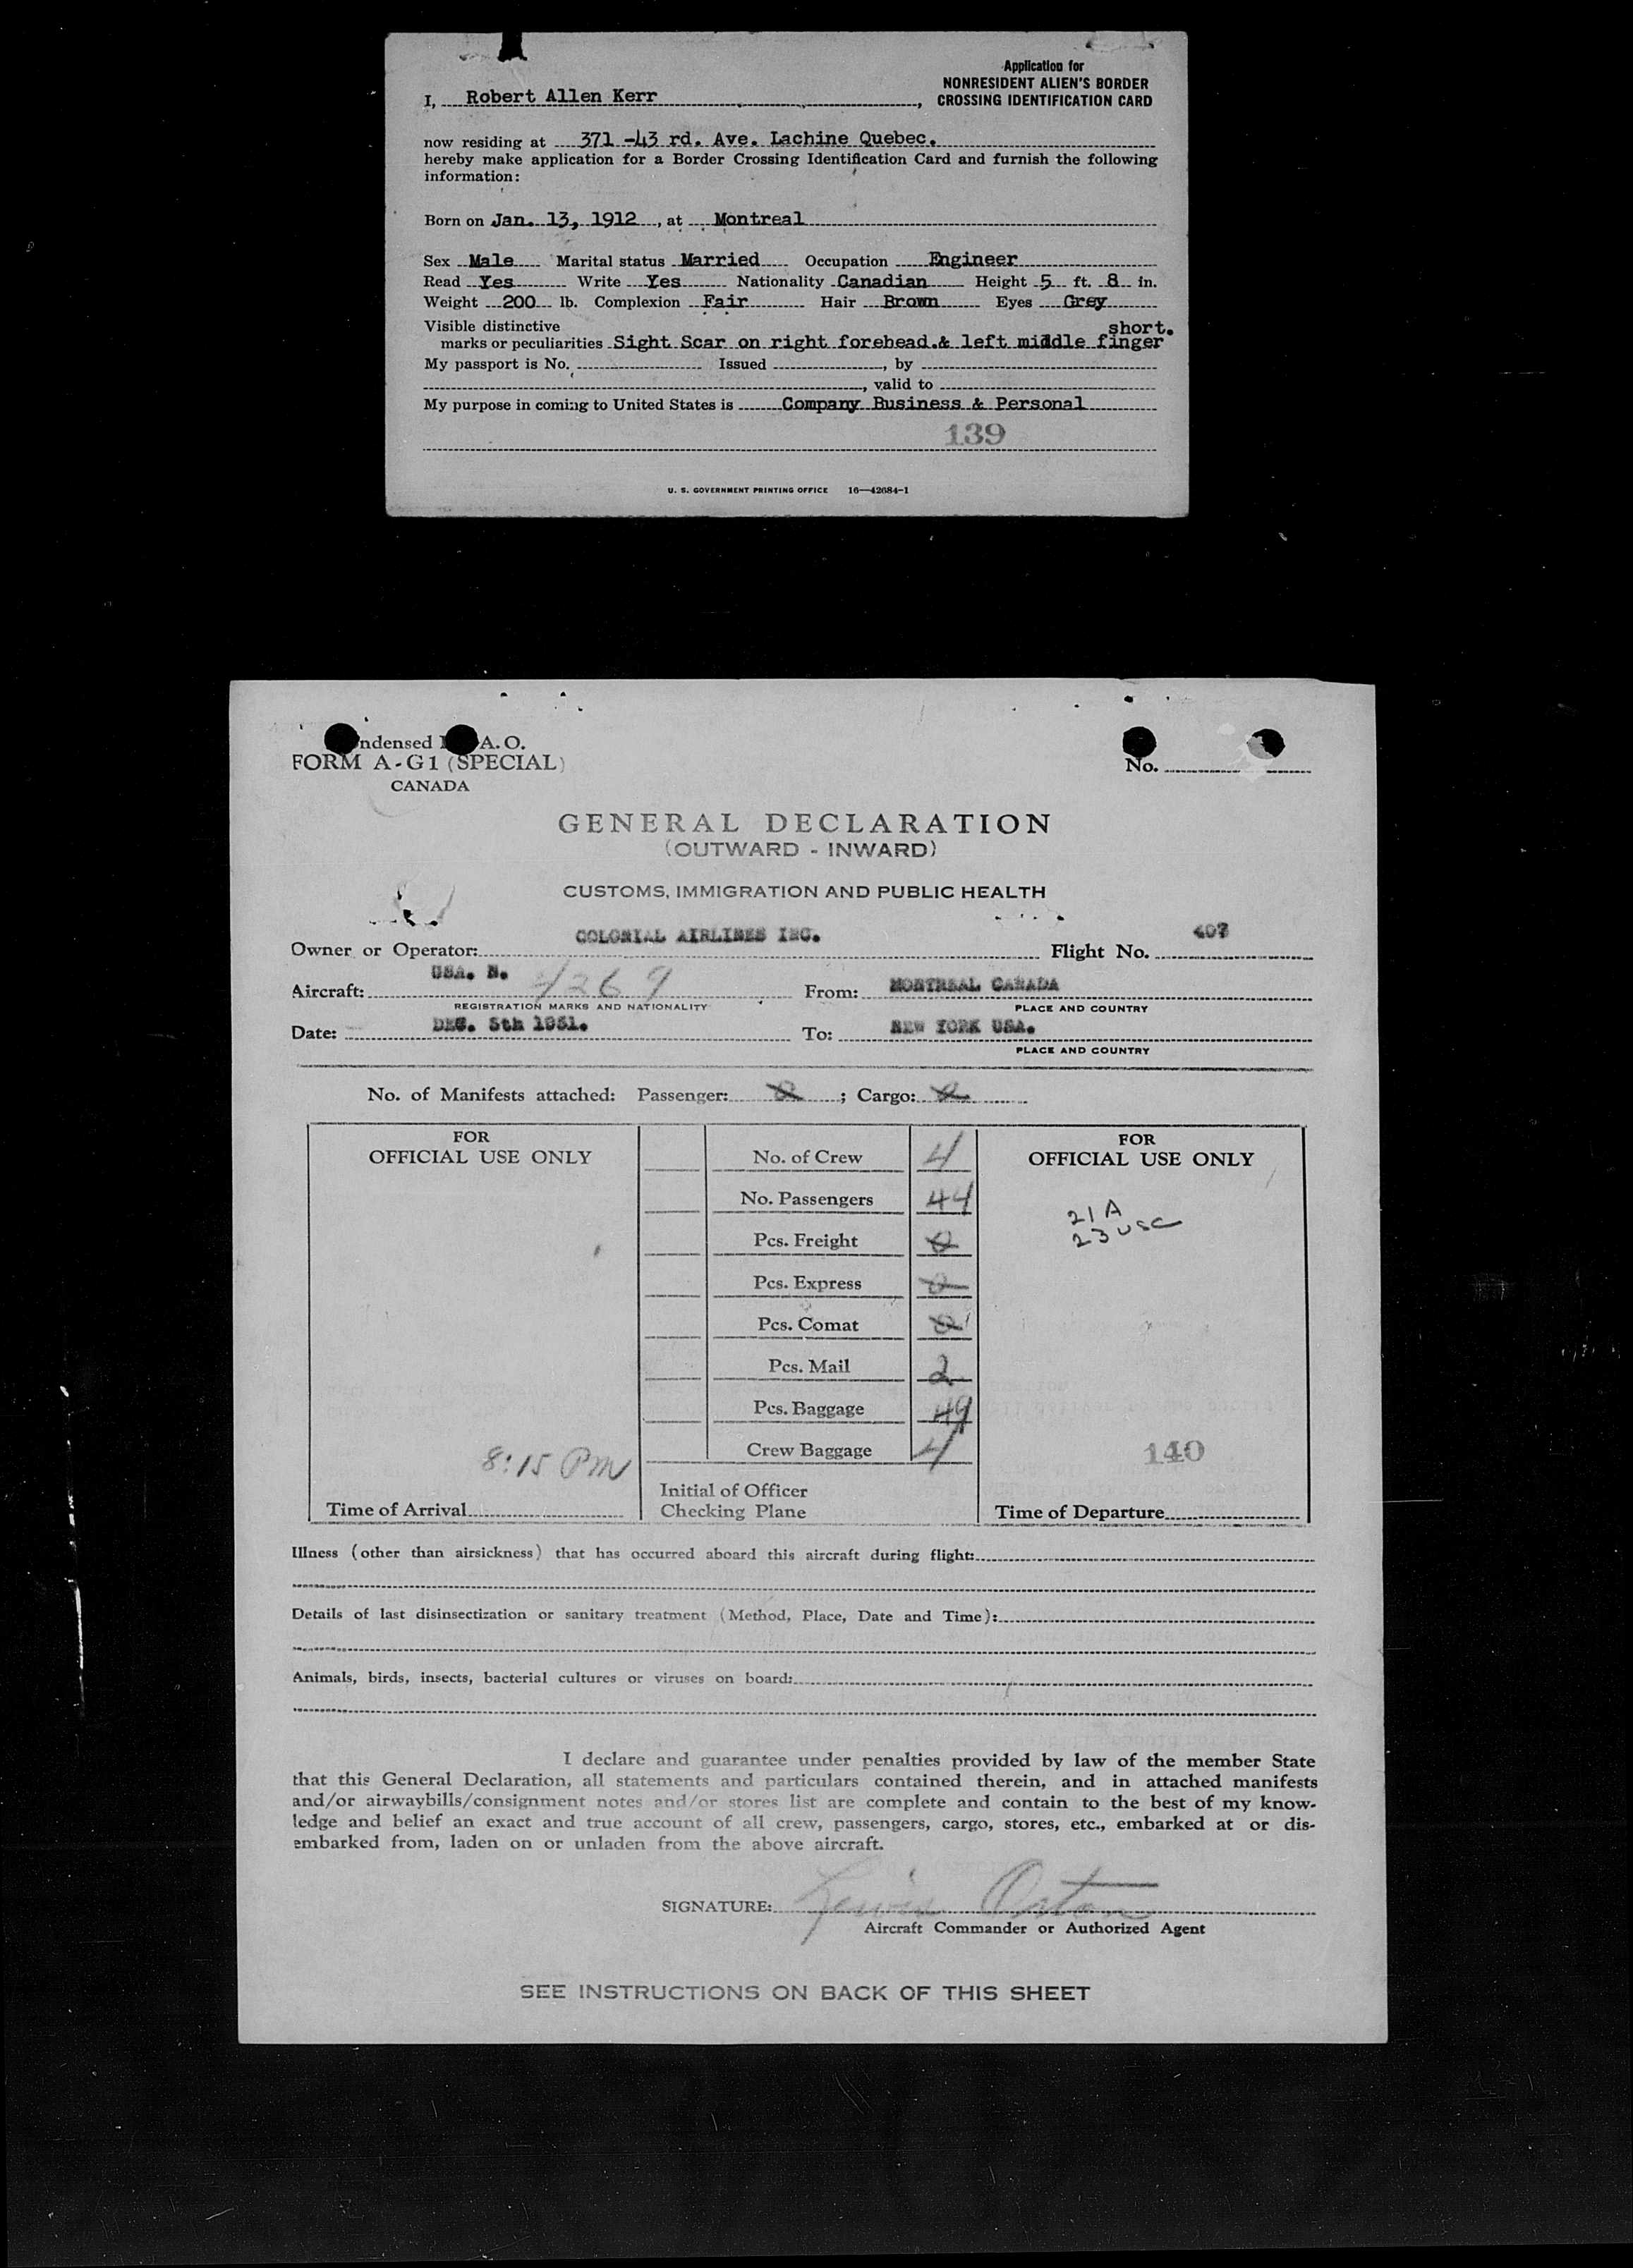 Application for
NONRESIDENT ALIEN'S BORDER
CROSSING IDENTIFICATION CARD
I, Robert Allen Kerr,
now residing at 371 -43 rd. Ave. Lachine Quebec.
hereby make application for a Border Crossing Identification Card and furnish the following
information:
Born on Jan. 13, 1912, at Montreal
Sex Male Marital status Married Occupation Engineer
Read Yes Write Yes Nationality Canadian Height 5 ft. 8 in.
Weight 200 lb. Complexion Fair Hair Brown Eyes Grey
Visible distinctive short.
marks or peculiarities Sight Scar on right forehead.& left middle finger
My passport is No. Issued , by
, valid to
My purpose in coming to United States is Company Business & Personal
139
U. S. GOVERNMENT PRINTING OFFICE 16—42684-1
ndensed A. O.
FORM A-G1 (SPECIAL)
CANADA
No.
GENERAL DECLARATION
(OUTWARD - INWARD)
CUSTOMS, IMMIGRATION AND PUBLIC HEALTH
Owner or Operator: COLONIAL AIRLINES INC. Flight No.
Aircraft: USA. N. From: MONTREAL CANADA
REGISTRATION MARKS AND NATIONALITY PLACE AND COUNTRY
Date: DEC. 5th 1951. To: NEW YORK USA.
PLACE AND COUNTRY
No. of Manifests attached: Passenger: ; Cargo:
FOR
OFFICIAL USE ONLY
No. of Crew 4
No. Passengers 44
Pcs. Freight 0
Pcs. Express 0
Pcs. Comat 0
Pcs. Mail 2
Pcs. Baggage 49
Crew Baggage 4
FOR
OFFICIAL USE ONLY
21 A
23 USC
140
8:15 PM
Time of Arrival
Initial of Officer
Checking Plane
Time of Departure
Illness (other than airsickness) that has occurred aboard this aircraft during flight:
Details of last disinsectization or sanitary treatment (Method, Place, Date and Time):
Animals, birds, insects, bacterial cultures or viruses on board:
I declare and guarantee under penalties provided by law of the member State
that this General Declaration, all statements and particulars contained therein, and in attached manifests
and/or airwaybills/consignment notes and/or stores list are complete and contain to the best of my know-
ledge and belief an exact and true account of all crew, passengers, cargo, stores, etc., embarked at or dis-
embarked from, laden on or unladen from the above aircraft.
SIGNATURE:
Aircraft Commander or Authorized Agent
SEE INSTRUCTIONS ON BACK OF THIS SHEET